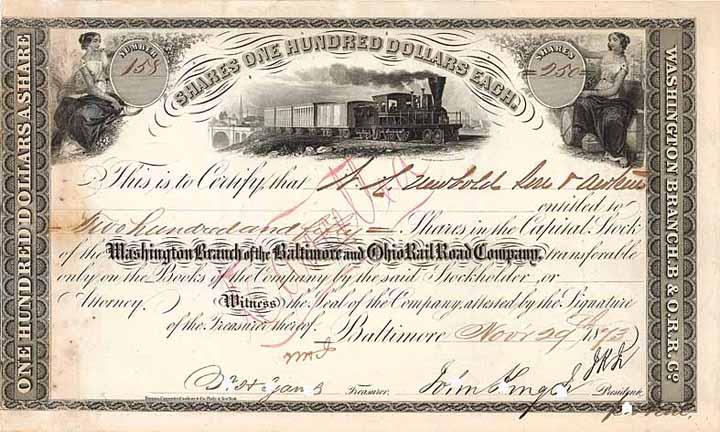 SHARES ONE HUNDRED DOLLARS EACH.
NUMBER
155
SHARES
=250=
ONE HUNDRED DOLLARS A SHARE
WASHINGTON BRANCH B. & O. R. R. Co.
This is to Certify, that Newbold Son &
entitled to
Two hundred and fifty = Shares in the Capital Stock
of the Washington Branch of the Baltimore and Ohio Rail Road Company, transferable
only on the Books of the Company by the said Stockholder, or
Attorney. (Witness) the Seal of the Company, attested by the Signature
of the Treasurer thereof. Baltimore Nov'r 29th 1873
Treasurer. John King Jr President.